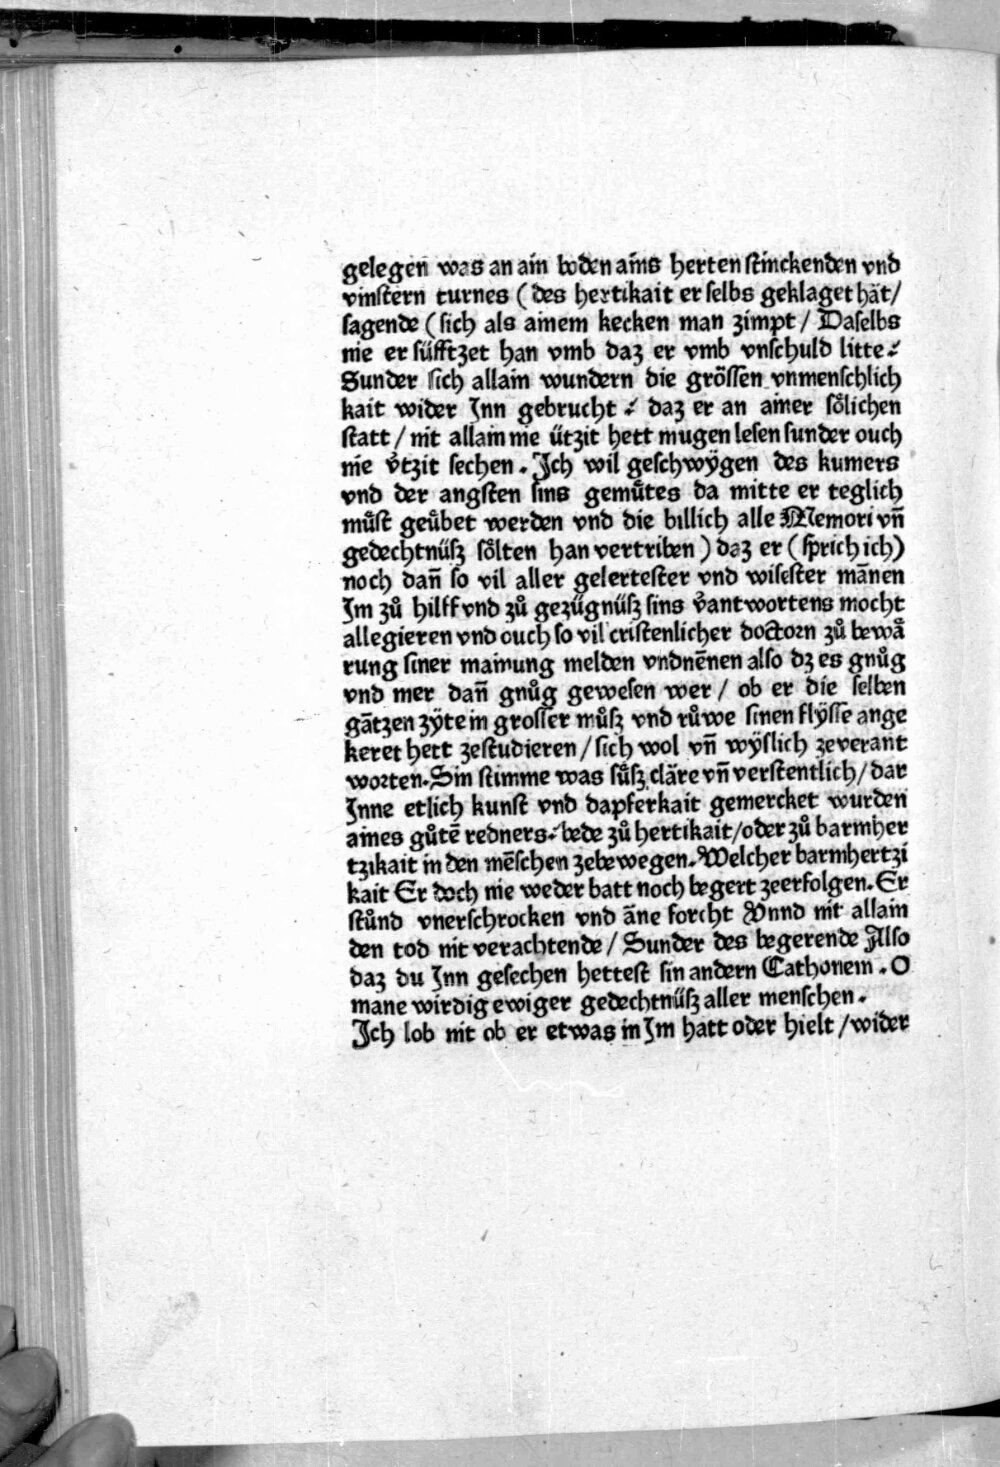 gelegen was an ain boden ains herten stinckenden vnd
vinstern turnes ( des hertikait er selbs geklaget hät/
sagende ( sich als ainem kecken man zimpt / Daselbs
nie er süfftzet han vmb daz er vmb vnschuld litte⸝
Sunder sich allain wundern die grössen vnmenschlich
kait wider Jnn gebrucht ⸝ daz er an ainer sölichen
statt / nit allain nie ützit hett mugen lesen sunder ouch
nie v̈tzit sechen . Jch wil geschwÿgen des kumers
vnd der angsten sins gemuͤtes da mitte er teglich
muͤst geuͤbet werden vnd die billich alle Memori vn̄
gedechtnüsz sölten han vertriben ) daz er ( sprich ich)
noch dan̄ so vil aller gelertester vnd wisester mānen
Jm zuͦ hilff vnd zuͦ gezügnüsz sins v̓antwortens mocht
allegieren vnd ouch so vil cristenlicher doctorn zuͦ bewaͤ
rung siner mainung melden vnd nēnen also dz es gnuͦg
vnd mer dan̄ gnuͦg gewesen wer / ob er die selben
gātzen zÿte in grosser muͦsz vnd ruͦwe sinen flÿsse ange
keret hett zestudieren / sich wol vn̄ wÿslich zeverant
worten. Sin stimme was suͤsz cläre vn̄ verstentlich / dar
Jnne etlich kunst vnd dapferkait gemercket wurden
aines guͦtē redners⸝ bede zuͦ hertikait/oder zuͦ barmher
tzikait in den mēschen zebewegen. Welcher barmhertzi
kait Er doch nie weder batt noch begert zeerfolgen. Er
stuͦnd vnerschrocken vnd āne forcht Vnnd nit allain
den tod nit verachtende / Sunder des begerende Also
daz du Jnn gesechen hettest sin andern Cathonem . O
mane wirdig ewiger gedechtnüsz aller menschen .
Jch lob nit ob er etwas in Jm hatt oder hielt / wider